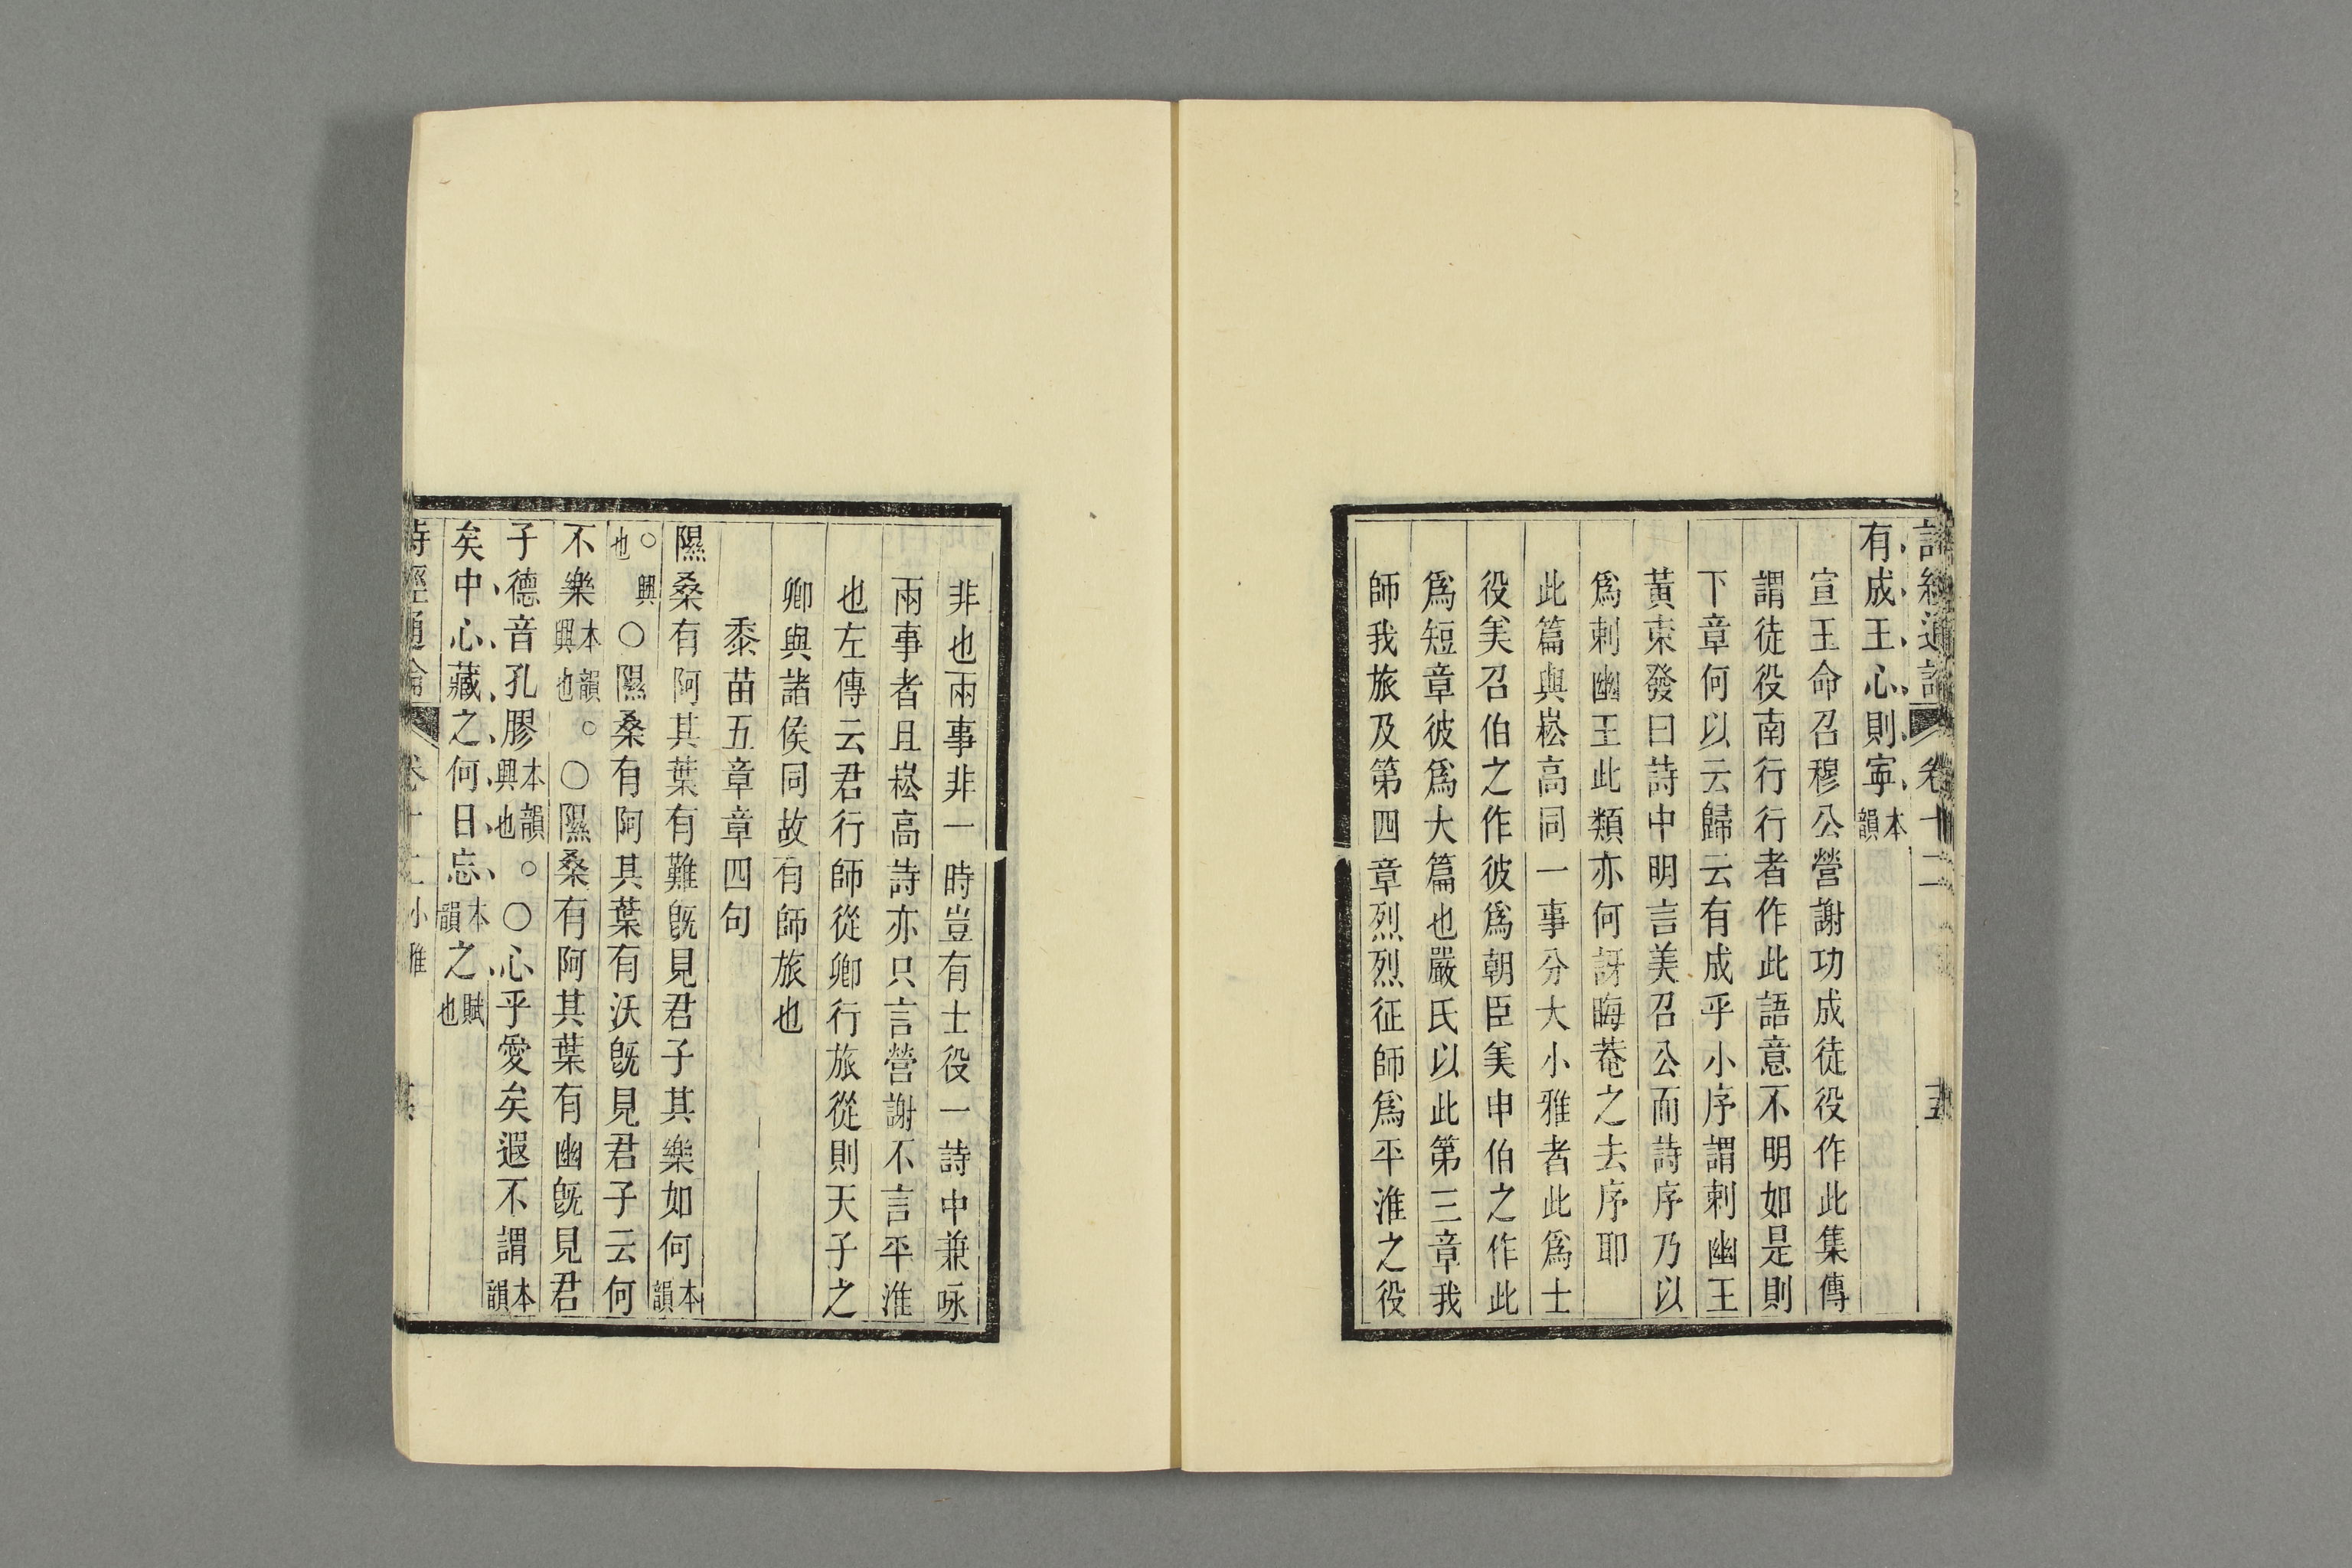 詩經通論 卷十二 十五
有成王心則寍本韻
宣王命召穆公營謝功成徒役作此集傳
謂徒役南行行者作此語意不明如是則
下章何以云歸云有成乎小序謂刺幽王
黃東發曰詩中明言美召公而詩序乃以
爲刺幽王此類亦何訝晦菴之去序耶
此篇與崧高同一事分大小雅者此爲士
役美召伯之作彼爲朝臣美申伯之作此
爲短章彼爲大篇也嚴氏以此第三章我
師我旅及第四章烈烈征師爲平淮之役
非也兩事非一時豈有士役一詩中兼咏
兩事者且崧高詩亦只言營謝不言平淮
也左傳云君行師從卿行旅從則天子之
卿與諸侯同故有師旅也
黍苗五章章四句
隰桑有阿其葉有難旣見君子其樂如何本韻
○興也○隰桑有阿其葉有沃旣見君子云何
不樂本韻○興也○隰桑有阿其葉有幽旣見君
子德音孔膠本韻○興也○心乎愛矣遐不謂本韻
矣中心藏之何日忘本韻之賦也
詩經通論 卷十二小雅